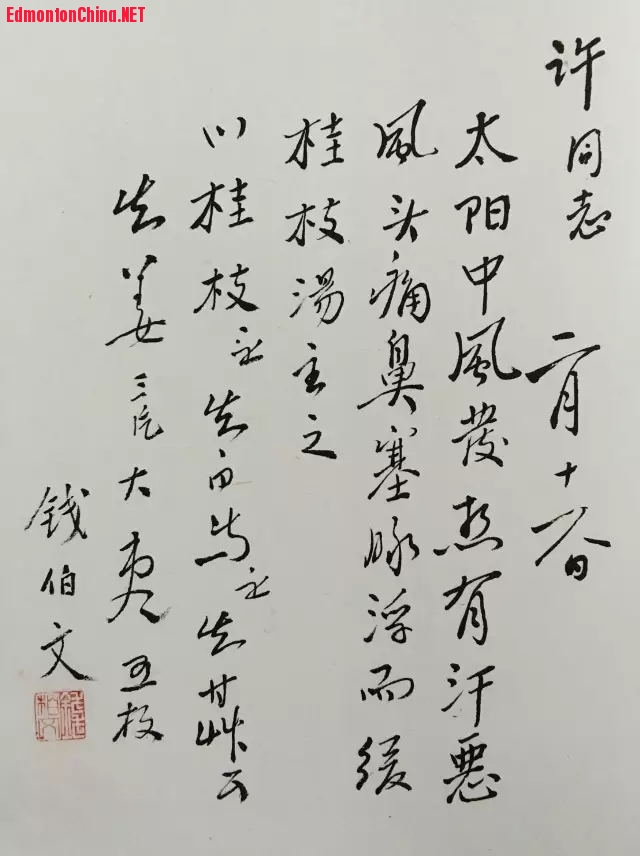 EdmontonChina.NET
许同志 二月十六日
太阳中風發热有汗悪
風头痛鼻塞脉浮而缓
桂枝湯主之
川桂枝 生白芍 生甘草
生姜三片大枣五枚
钱伯文